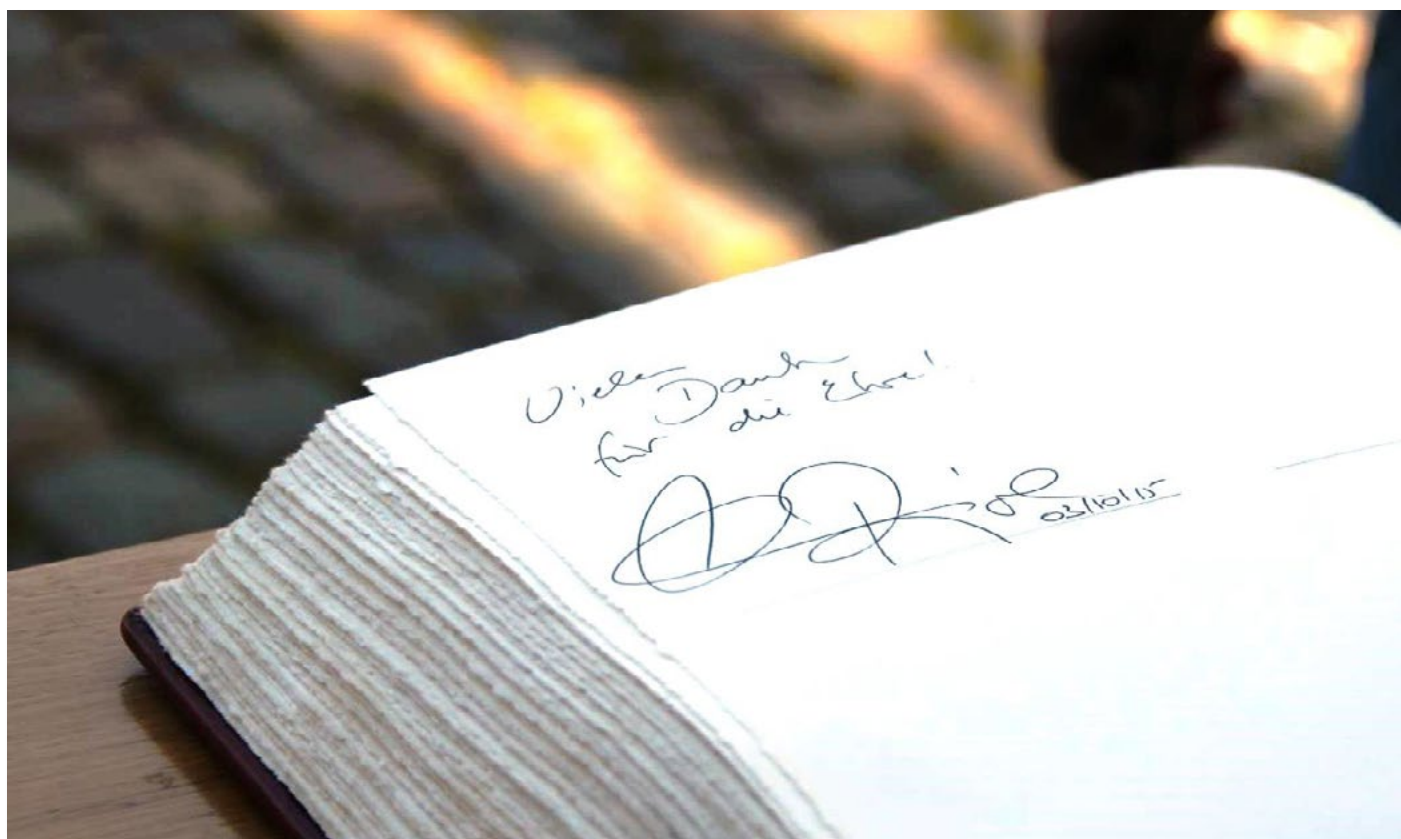 Vielen Dank
für die Ehre!
03/10/15